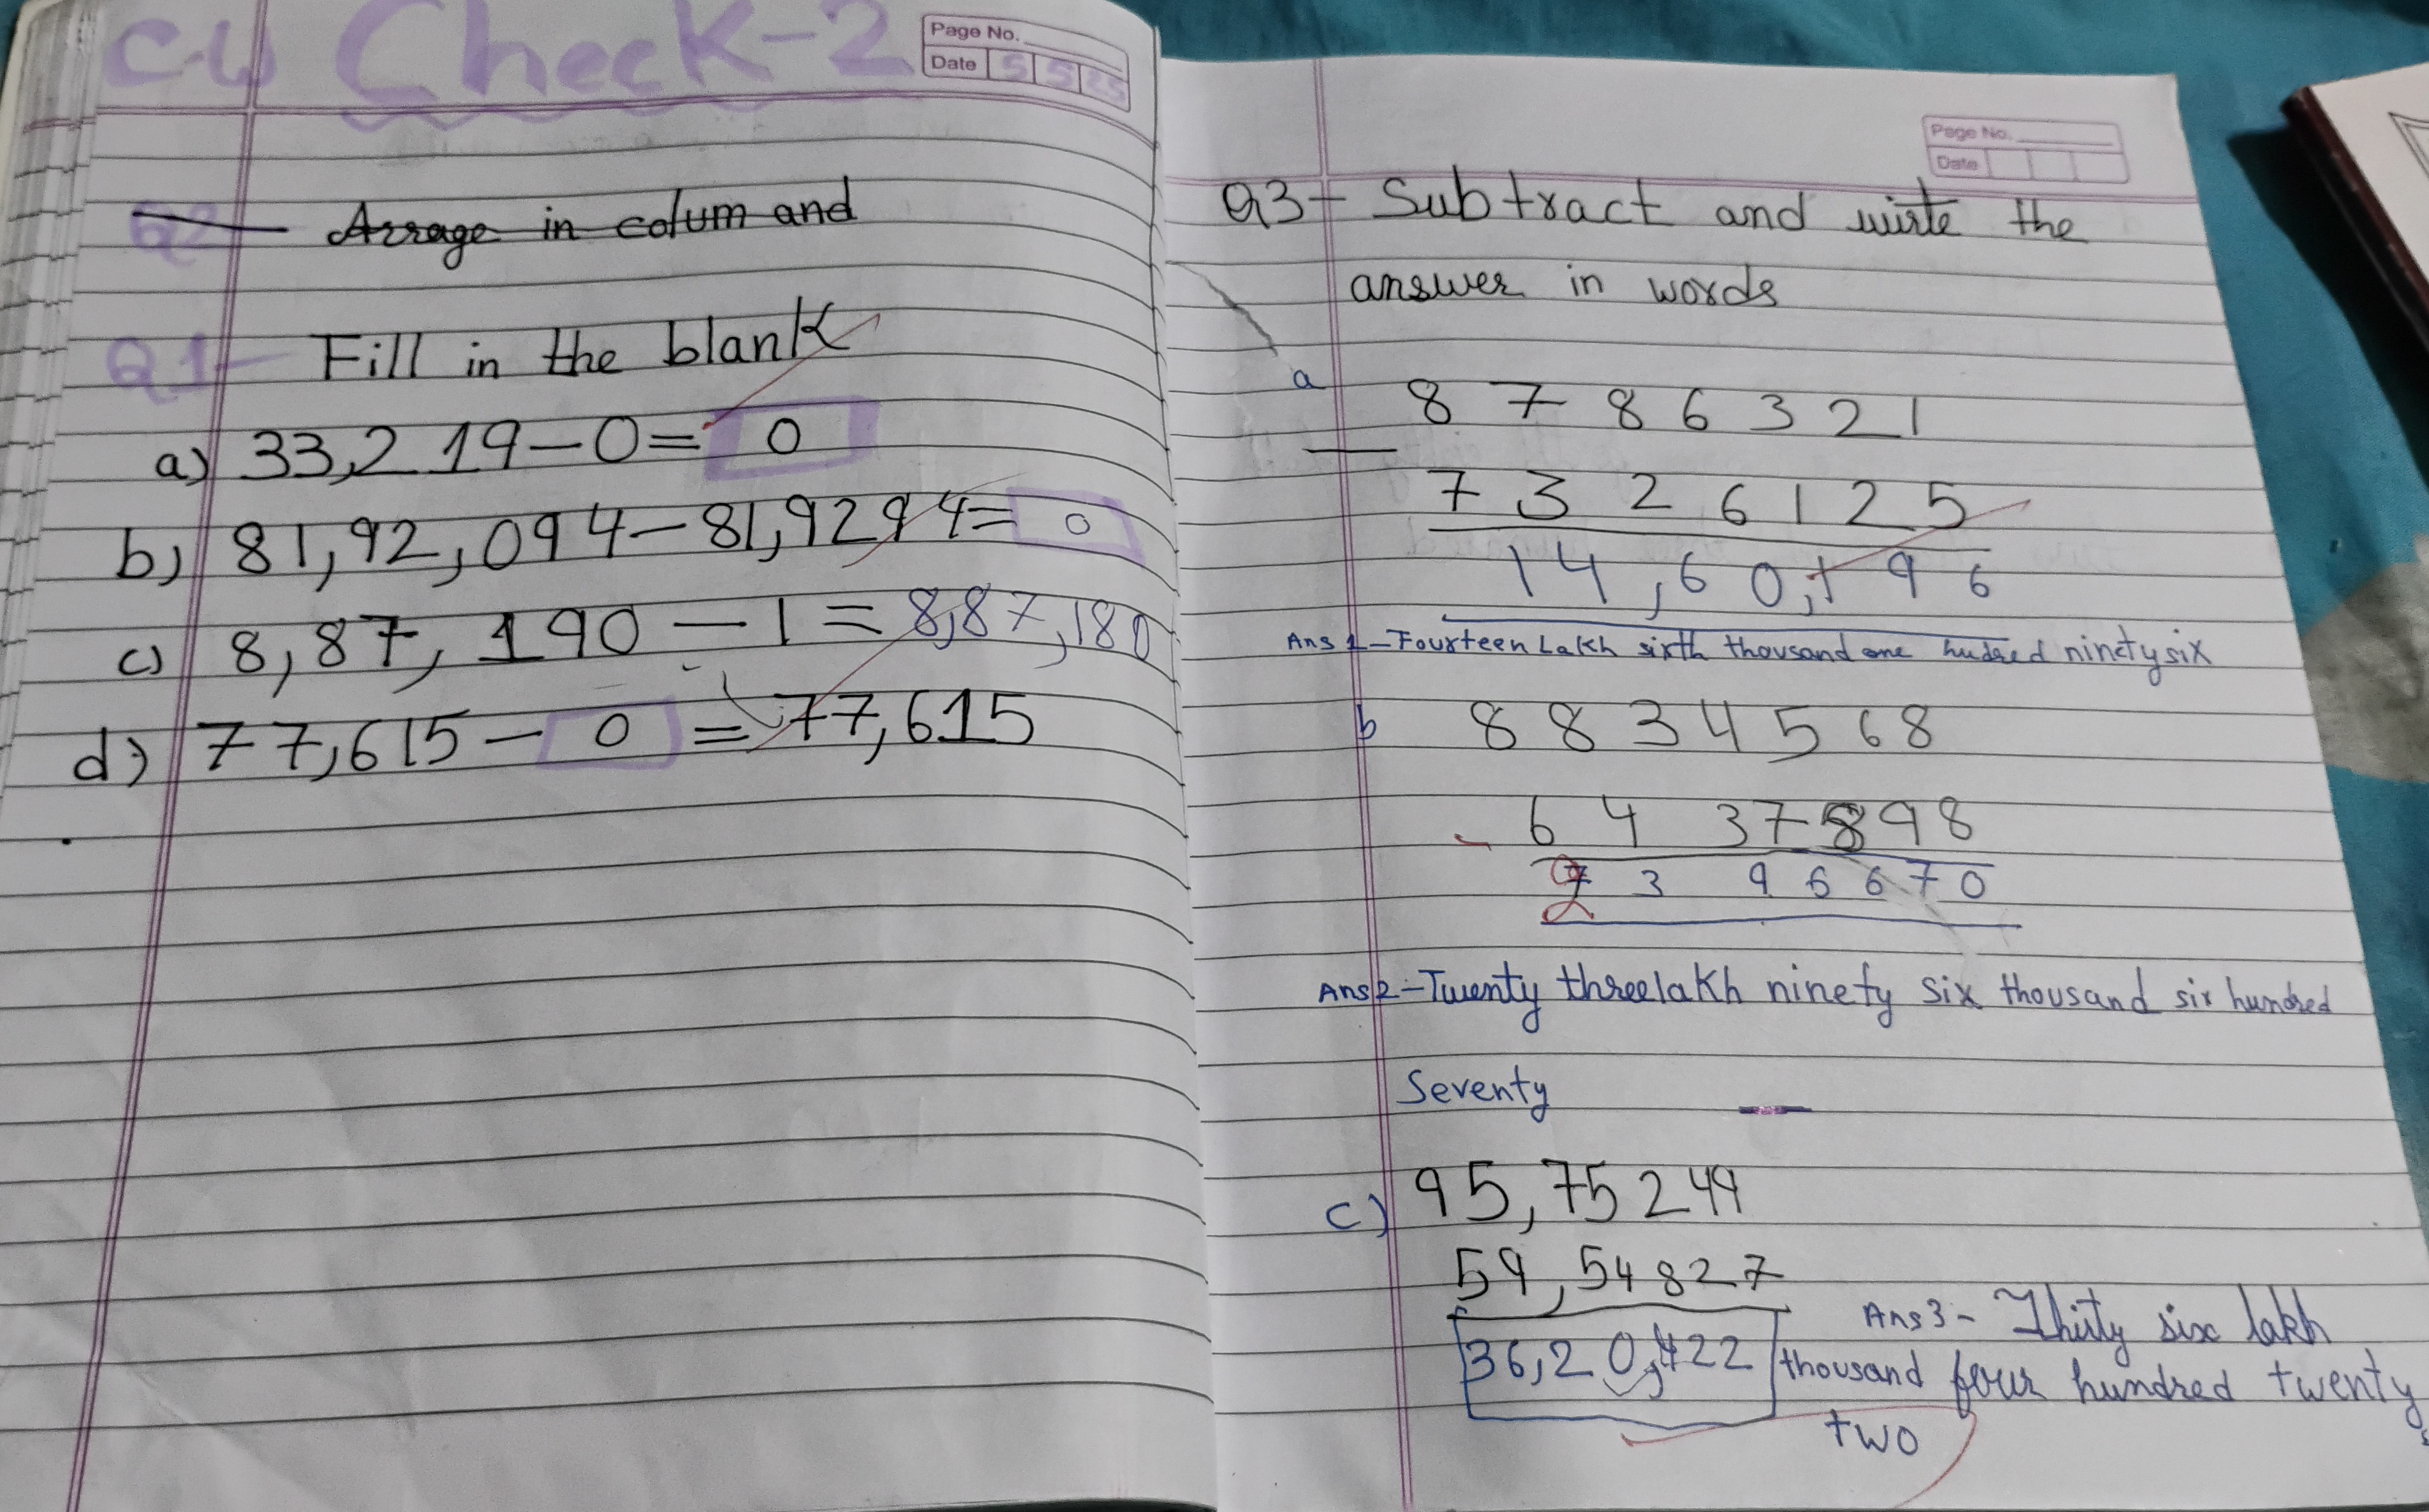 C.W Check-2
Page No.
Date 5 5 25
Q2 Arrage in colum and
Q1- Fill in the blank
a) 33,219-0= 0
b) 81,92,094-81,9294= 0
c) 8,87,190-1=8,87,180
d) 77,615- 0 =77,615
Page No.
Date
Q3- Subtract and wirte the
answer in words
a 8786321
- 7326125
14,60,196
Ans 1-Fourteen Lakh sixth thousand one hudred ninety six
b 8834568
- 6437898
2396670
Ans 2-Twenty three lakh ninety six thousand six hundred
Seventy
c) 95,75249
59,54827
36,20,422
Ans 3- Thity six lakh
thousand four hundred twenty
two